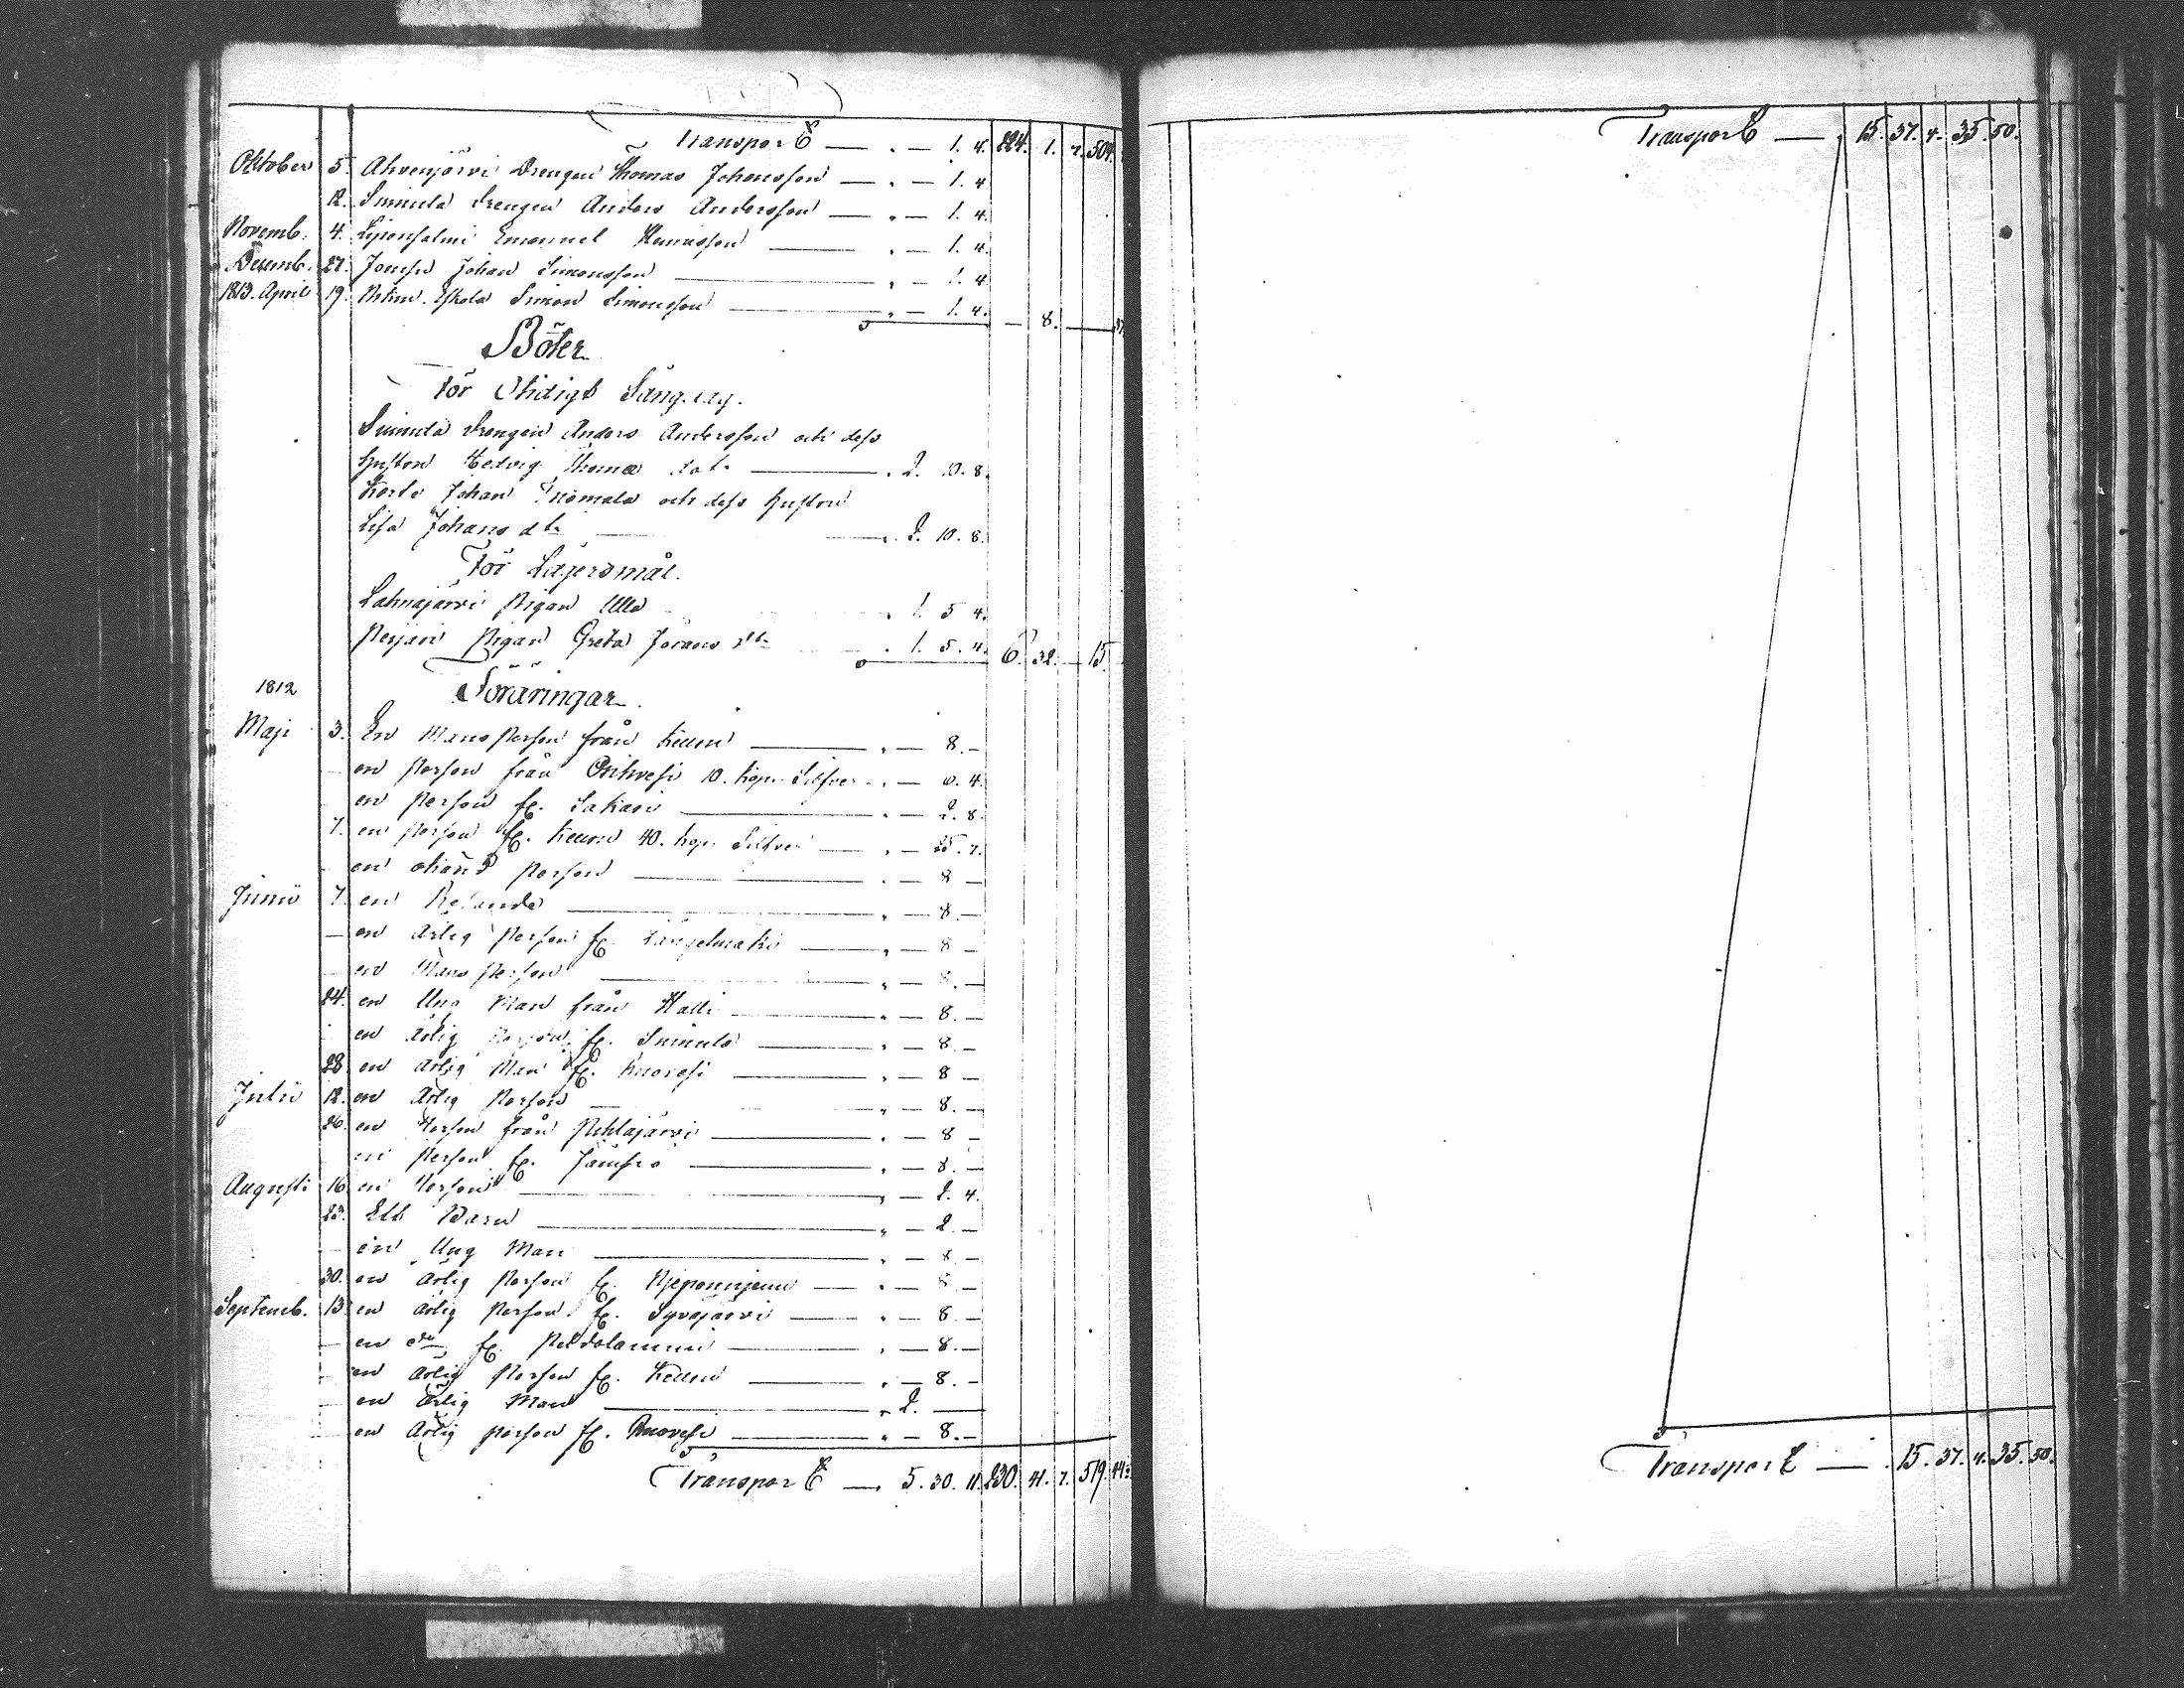 Transport — „ — 1. 4. 224. 1. 7. 504.
Oktober 5. Ahvenjärvi Drengen Thomas Johansson — „ — 1. 4
12. Simula Drengen Anders Andersson — „ — 1. 4.
Novemb. 4. Emanuel Henricsson — „ — 1. 4.
Decemb. 27. Johan Simonsson — „ — 1. 4
1813. April 19. Eskola Simon Simonsson — „ — 1. 4. — 8. —
Böter
För Otidigt Sänglag.
Simula Drengen Anders Andersson och dess
hustru Hedvig Thomæ dotr — „ 2. 10. 8.
Johan och dess hustru
Lisa Johans dr — „ 2. 10. 8.
För Lägersmål.
Lahnajärvi Pigan Ulla „ 1. 5 4.
Pigan Greta Jörans dr „ 1. 5. 4. 6. 32. — 15.
1812
Föräringar
Maji 3. En Mans Person från Keuru — „ — 8. —
en Person från Orihvesi 10. kop. Silfver „ — 6. 4.
en Person fr. Sakari — „ — 2. 8.
7. en Person fr. Keuru 40. kop. Silfver — „ — 25. 7.
en okänd Person — „ — 8 —
Junii 7. en Resande — „ — 8. —
— en ärlig Person fr. Längelmäki — „ — 8 —
— en Mans Person — „ — 8. —
24. en Ung Man från Halli — „ — 8. —
en ärlig Person fr. Simula — „ — 8. —
28 en ärlig Man fr. Kuoresi — „ — 8 —
Julii 12. en Ärlig Person — „ — 8. —
26. en Person från Pihlajärvi — „ — 8 —
en Person fr. Jämsä — „ — 8. —
Augusti 16. en Person — „ — 2. 4.
23. Ett Barn — „ — 2. —
en Ung Man — „ — 8 —
30. en Ärlig Person fr. — „ — 8 —
Septemb. 13. en ärlig Person fr. Syväjärvi — „ — 8. —
— en do fr. — „ — 8. —
— en ärlig Person fr. Keuru — „ — 8. —
— en ärlig Man — „ 2. —
en Ärlig person fr. Ruovesi — „ — 8. —
Transport — 5. 30. 11. 230. 41. 7. 519. 44
Transport — 15. 37. 4. 35. 50.
Transport — 15. 37. 4. 35. 50.